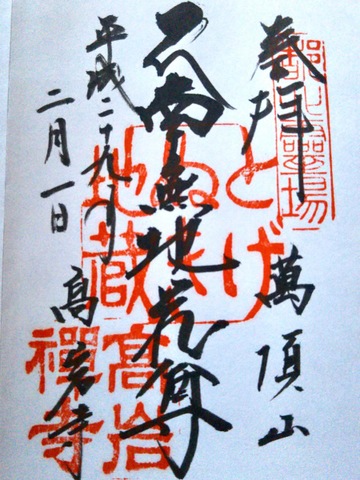 奉拝
萬頂山
南無地蔵尊
平成二十九年
二月一日
高岩寺
とげ
ぬき
地蔵
高岩
禅寺